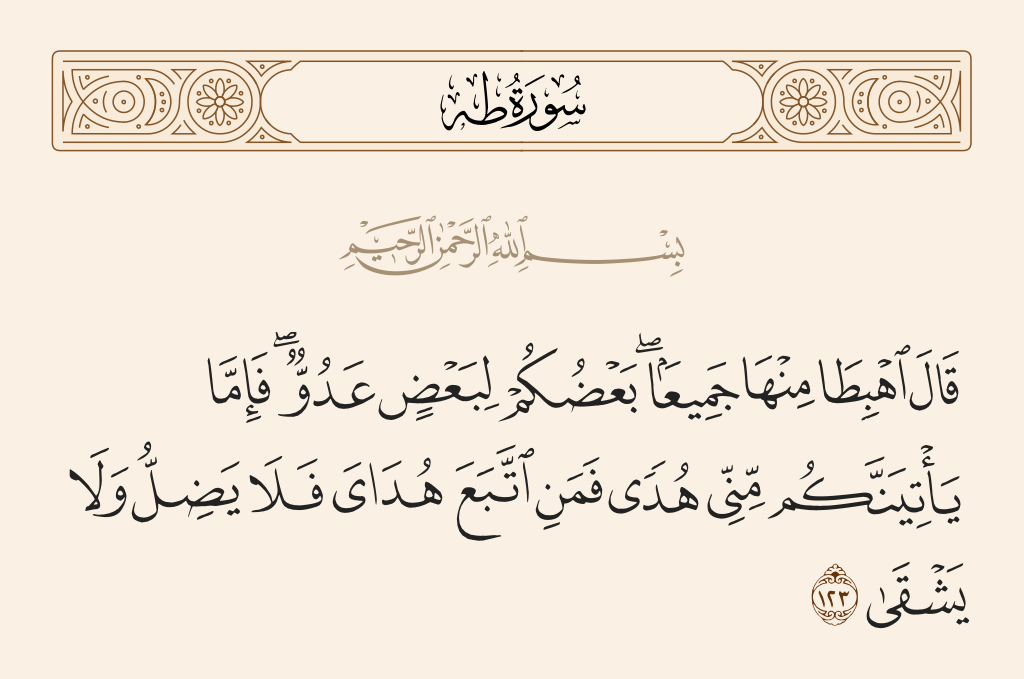 سُورَةُ طه
بِسْمِ ٱللَّهِ ٱلرَّحْمَٰنِ ٱلرَّحِيمِ
قَالَ ٱهْبِطَا مِنْهَا جَمِيعَۢاۖ بَعْضُكُمْ لِبَعْضٍ عَدُوٌّۖ فَإِمَّا
يَأْتِيَنَّكُم مِّنِّى هُدًى فَمَنِ ٱتَّبَعَ هُدَاىَ فَلَا يَضِلُّ وَلَا
يَشْقَىٰ ١٢٣